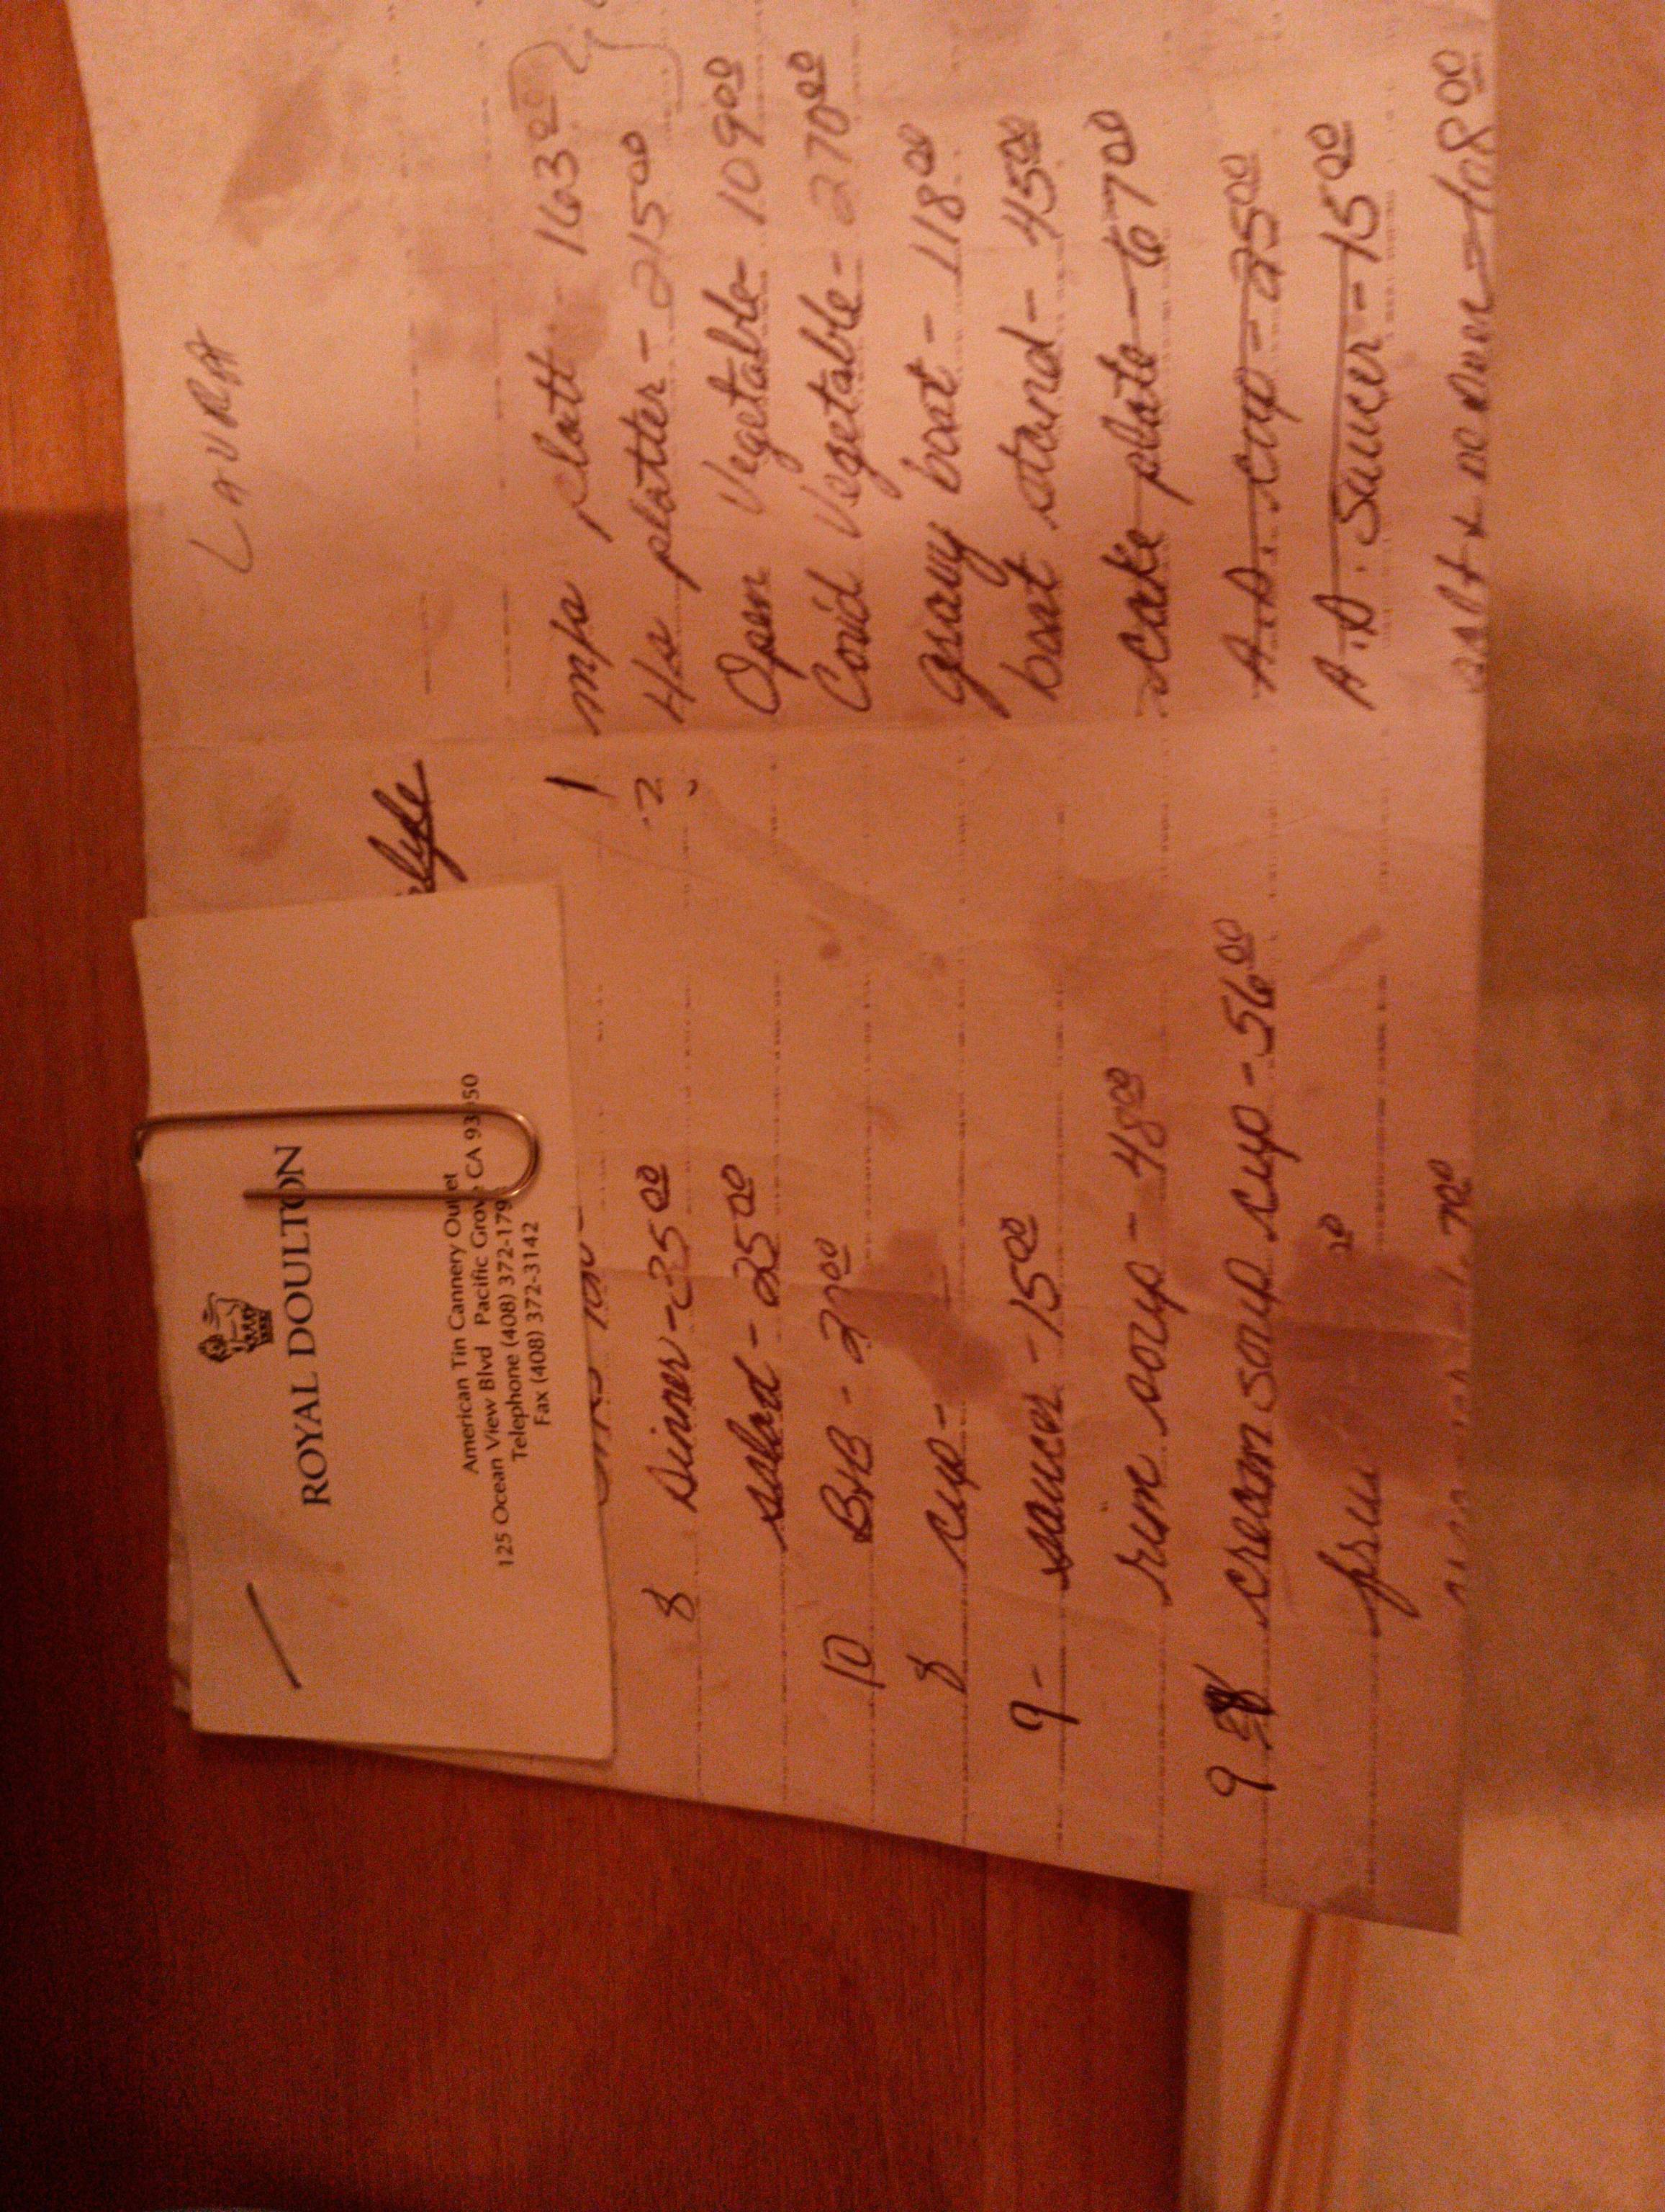 LAURA
ROYAL DOULTON
American Tin Cannery Outlet
125 Ocean View Blvd Pacific Grove CA 93950
Telephone (408) 372-179
Fax (408) 372-3142
8 dinner - 35 00
salad - 25 00
10 B+B - 20 00
8 cup -
9 - saucer - 15 00
rim soup - 48 00
9 cream soup cup - 56 00
1 m/s platt - 163 00
2 4/s platter - 215 00
Open Vegetable - 109 00
Cov'd Vegetable - 270 00
gravy boat - 118 00
boat stand - 45 00
cake plate - 67 00
A.D. cup - 25 00
A.D. Saucer - 15 00
salt +